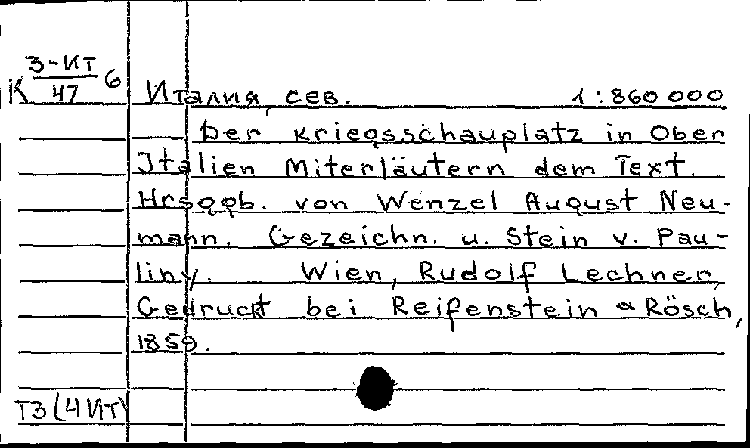 К 3-ИТ/47 6
Италия, сев. 1:860 000
Der Kriegsschauplatz in Ober
Italien Miterläutern dem Text.
Hrsggb. von Wenzel August Neu-
mann. Gezeichn. u. Stein v. Pau-
liny. Wien, Rudolf Lechner,
Gedruckt bei Reifenstein & Rösch,
1859.
Т3 (4ИТ)